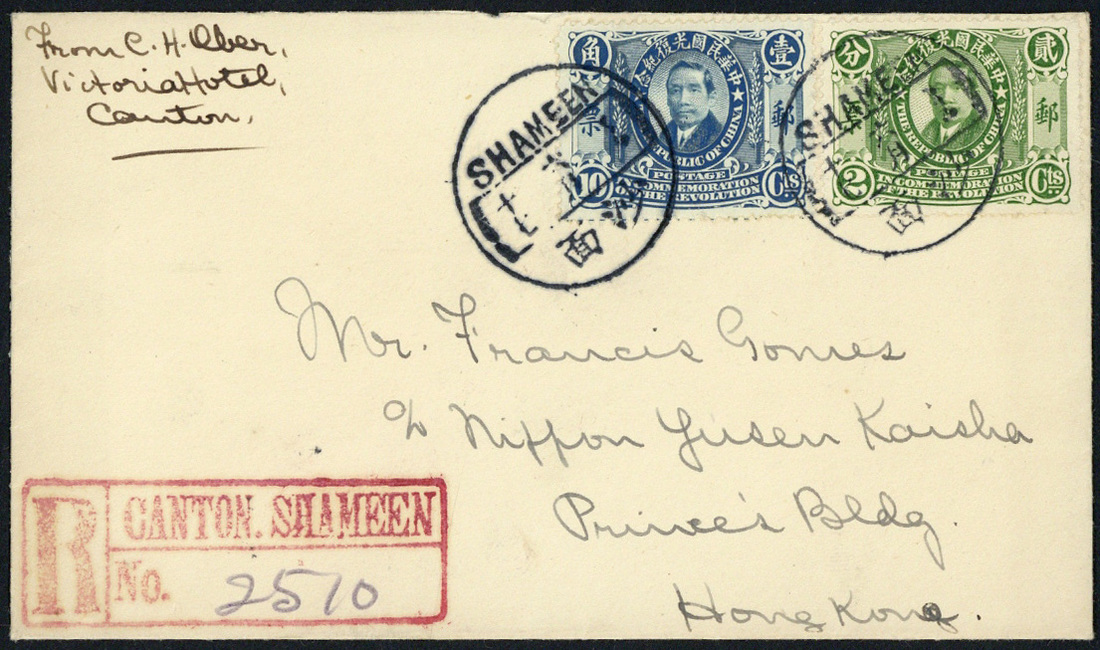 From C. H. Ober,
Victoria Hotel,
Canton.
角 中華民國光復紀念 壹
票 郵
REPUBLIC OF CHINA
POSTAGE
10 IN COMMEMORATION Cts
OF THE REVOLUTION
分 中華民國光復紀念 貳
郵
THE REPUBLIC OF CHINA
POSTAGE
2 IN COMMEMORATION Cts
OF THE REVOLUTION
SHAMEEN
沙面
SHAMEEN
面
Mr. Francis Gomes
c/o Nippon Yusen Kaisha
Prince's Bldg.
Hong Kong.
R CANTON. SHAMEEN
No. 2510